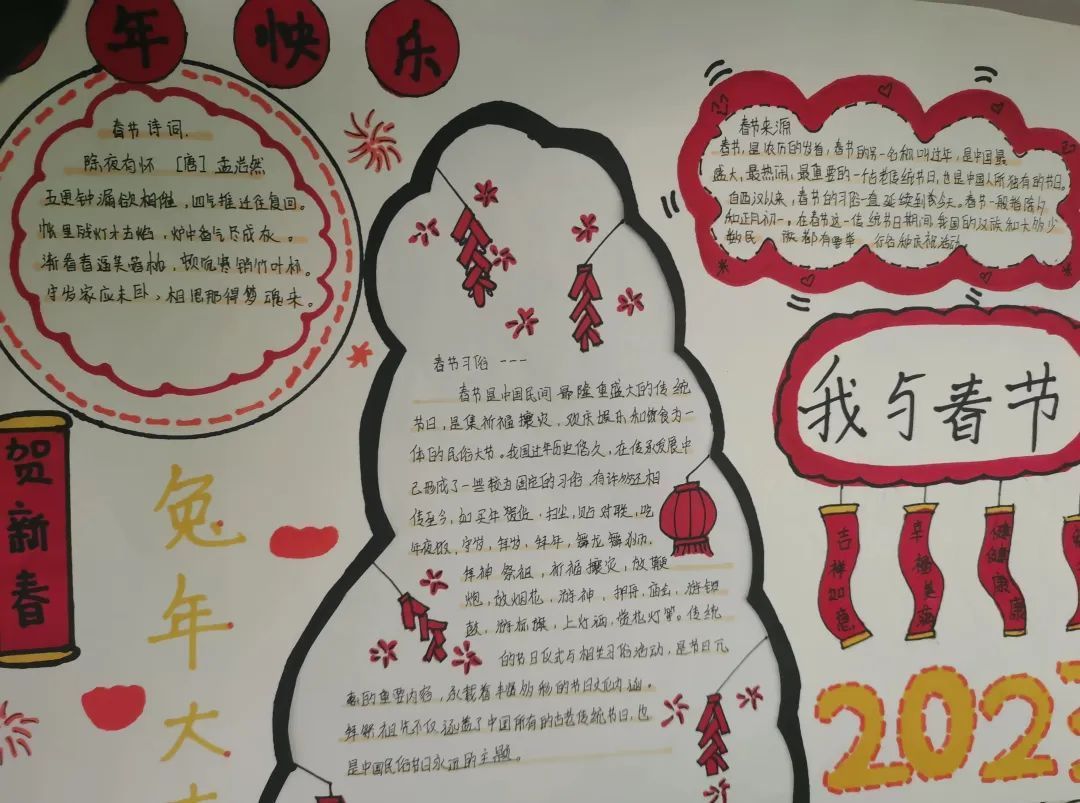 年快乐
春节诗词
除夜有怀 [唐] 孟浩然
五更钟漏欲相催，四气推迁往复回。
帐里残灯才去焰，炉中香气尽成灰。
渐看春逼芙蓉枕，顿觉寒销竹叶杯。
守岁家家应未卧，相思那得梦魂来。
贺新春
兔年大
春节习俗 ---
春节是中国民间最隆重盛大的传统
节日，是集祈福攘灾、欢庆娱乐和饮食为一
体的民俗大节。我国过年历史悠久，在传承发展中
已形成了一些较为固定的习俗，有许多还相
传至今，如买年货、扫尘，贴对联，吃
年夜饭，守岁，拜岁，拜年，舞龙舞狮，
拜神祭祖，祈福攘灾，放鞭
炮，放烟花，游神，押舟，庙会，游锣
鼓，游标旗，上灯酒，赏花灯等。传统
的节日仪式与相关习俗活动，是节日元
素的重要内容，承载着丰富多彩的节日文化内涵。
拜祭祖先不仅涵盖了中国所有的古老传统节日，也
是中国民俗节日永远的主题。
春节来源
春节，是农历的岁首，春节的另一名称叫过年，是中国最
盛大，最热闹，最重要的一个古老传统节日，也是中国人所独有的节日。
自西汉以来，春节的习俗一直延续到今天。春节一般指除夕
和正月初一。在春节这一传统节日期间我国的汉族和大多少
数民族都有要举行各种庆祝活动
我与春节
吉祥如意
幸福美满
健健康康
2023